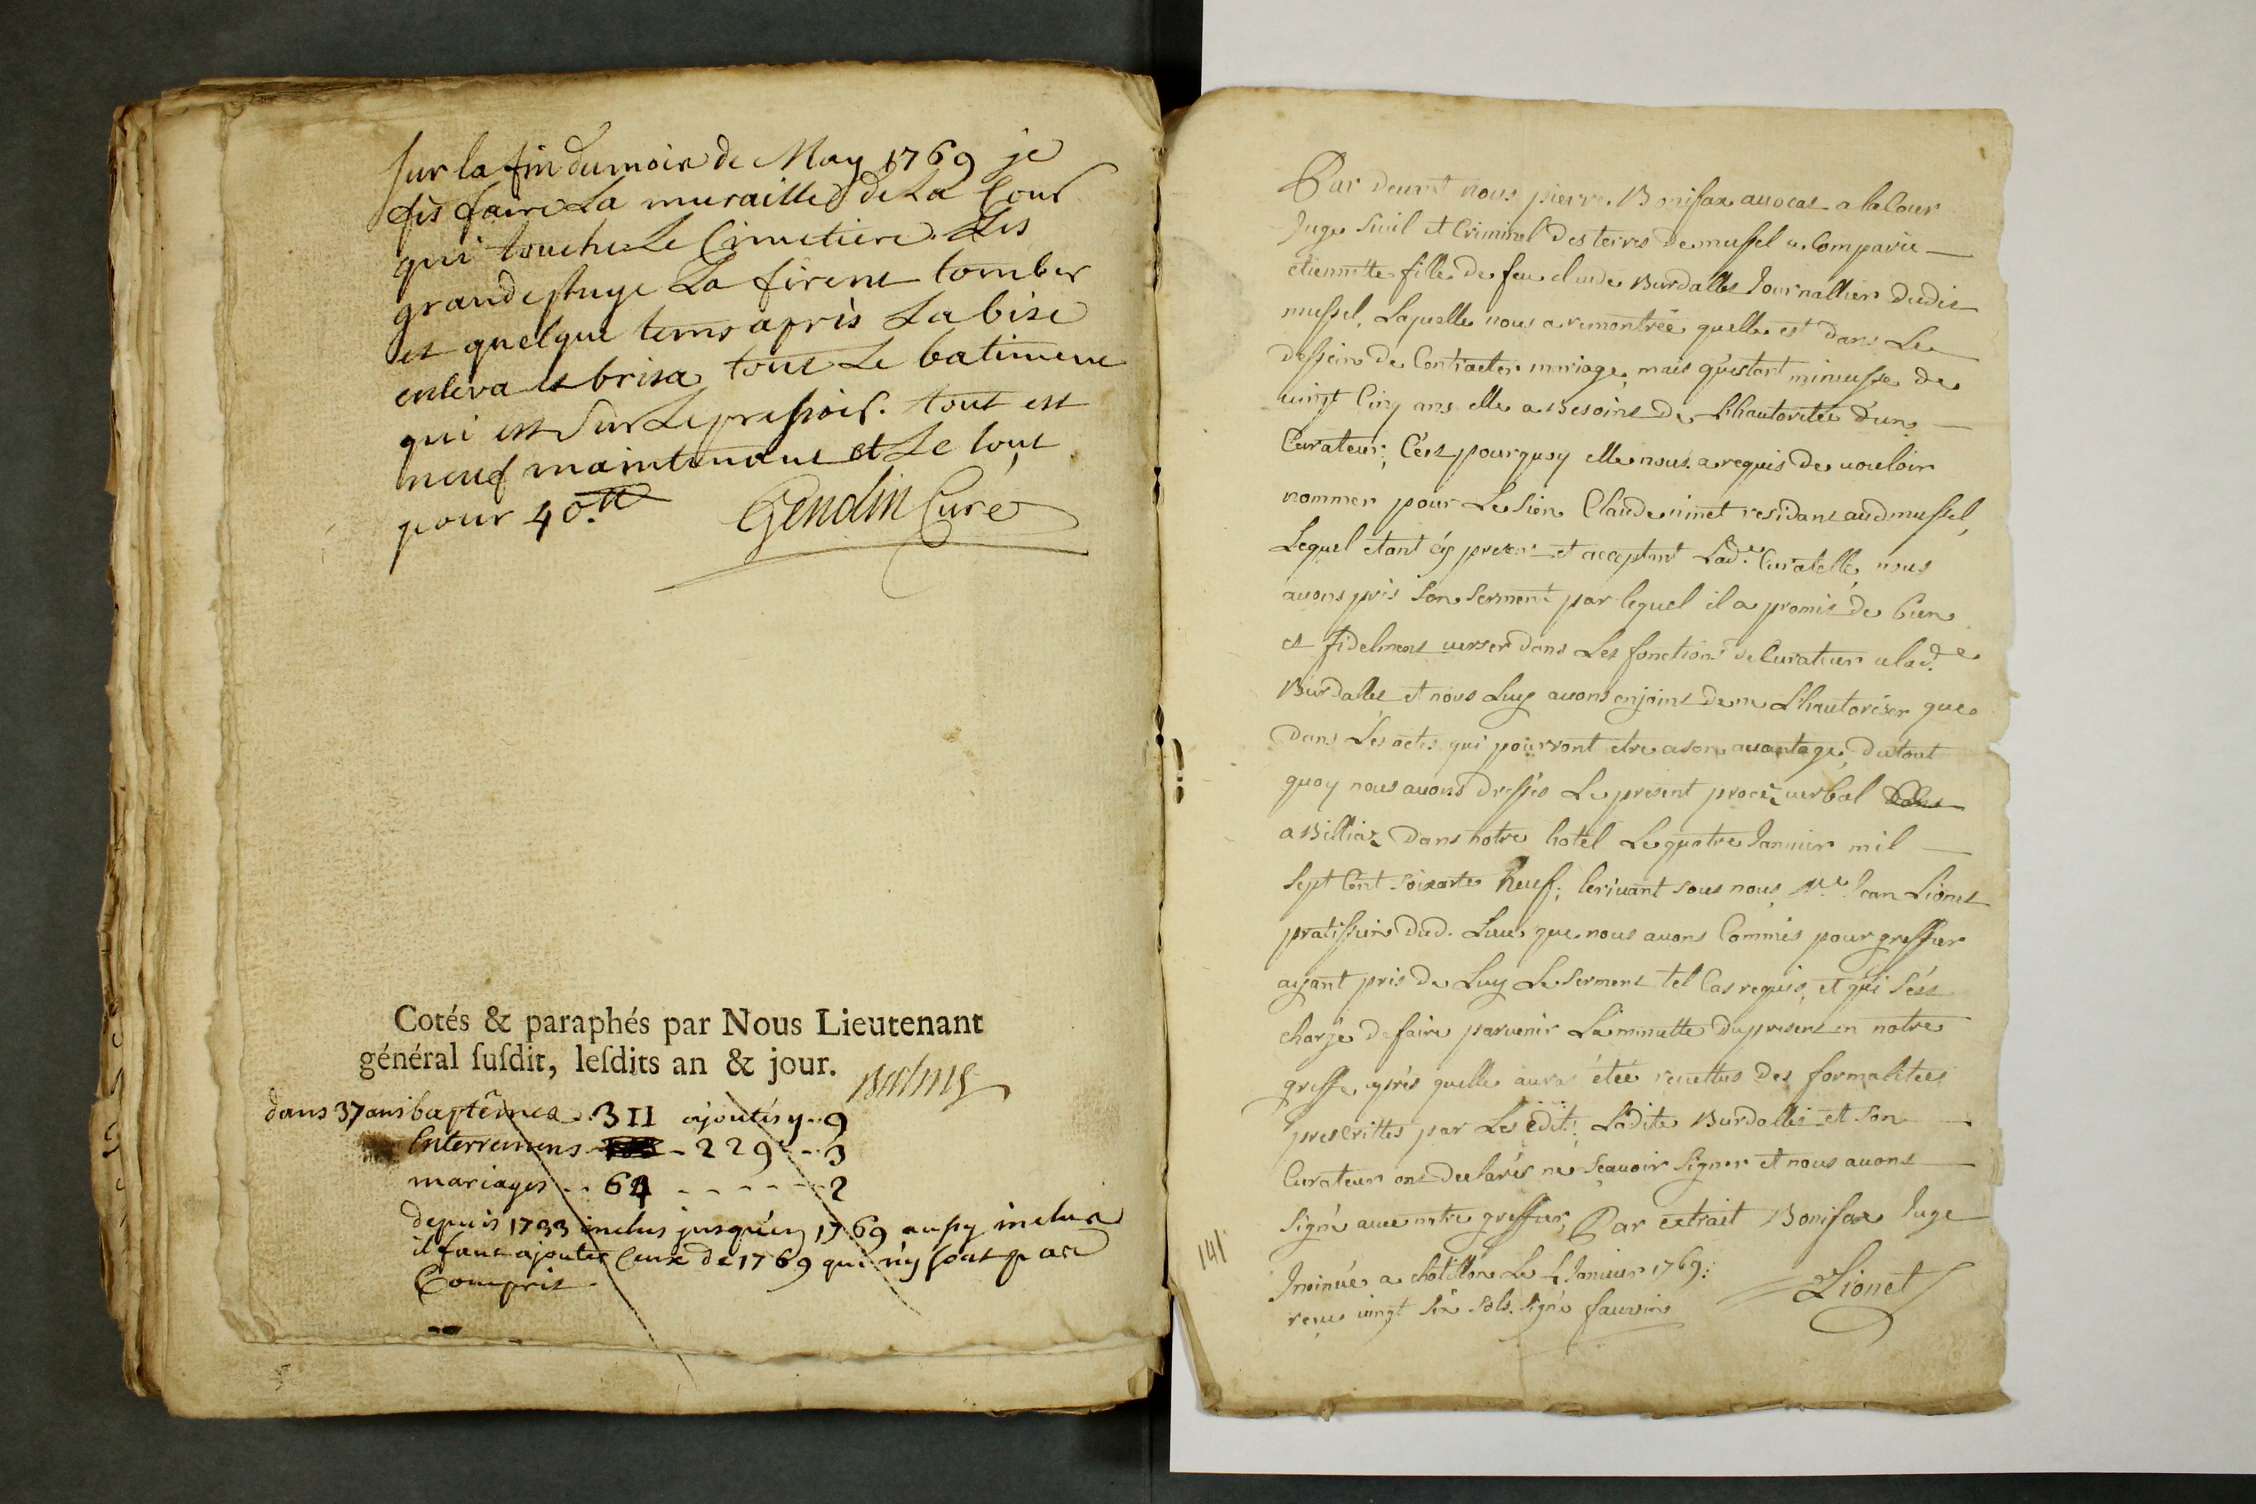 sur la fin du mois de May 1769 je
fis faire La muraille de La Cour
qui touche Le Cimetiere. Les
grandes pluye La firent tomber
et quelque tems après La bise
enleva et brisa tout Le batiment
qui est sur Le pressoir. tout est
neuf maintenant et Le tout
pour 40.tt Gendin Curé
Cotés & paraphés par Nous Lieutenant
général susdit, lesdits an & jour.
dans 37 ans baptêmes . 311 ajoutés y . . 9
Enterremens - 229 - - 3
mariages - - 64 - - - - - - 2
depuis 1733 inclus jusqu'en 1769 aussy inclus
il faut ajouter Ceux de 1769 qui n'y sont pas
Compris
Par devant nous pierre Bonifax avocat a la Cour
Juge Sivil et Criminel des terres de mussel a Comparüe
etiennette fille de feu claude Burdallet Journallier dudit
mussel, Laquelle nous a remontrée quelle est dans Le
dessein de Contracter mariage, mais qu'estant mineusse de
vingt Cinq ans elle a Besoins de Lhautoritée d'un
Curateur; C'est pourquoy elle nous a requis de vouloir
nommer pour Le Sien Claude vinet residant aud mussel,
Lequel etant çy present et acceptant Lad.e Curatelle nous
avons pris Son Serment par lequel il a promis de bien
et fidelment verser dans Les fonctions de Curateur a lad.e
Burdallet et nous Luy avons enjoint de ne Lhautoriser que
dans Les actes qui pourront etre a son avantage, du tout
quoy nous avons dressés Le present procez verbal
a Billiaz dans notre hotel Le quatre Janvier mil
Sept Cent Soixante neuf; Ecrivant sous nous M.e Jean Lionet
pratissien dud. Lieu que nous avons Commis pour greffier
ayant pris de Luy Le Serment tel Cas requis, et qui s'ést
chargé de faire parvenir La minutte du present en notre
greffe après quelle aura étée revettue des formalitées
prescrittes par Les edits; Ladite Burdallet et Son
Curateur ont declarés ne Sçavoir Signer et nous avons
Signé avec notre greffier, Par extrait Bonifax Juge
Insinuée a chatillon Le 4 Janvier 1769;
reçus vingt Six Sols. Signé Lionet
141